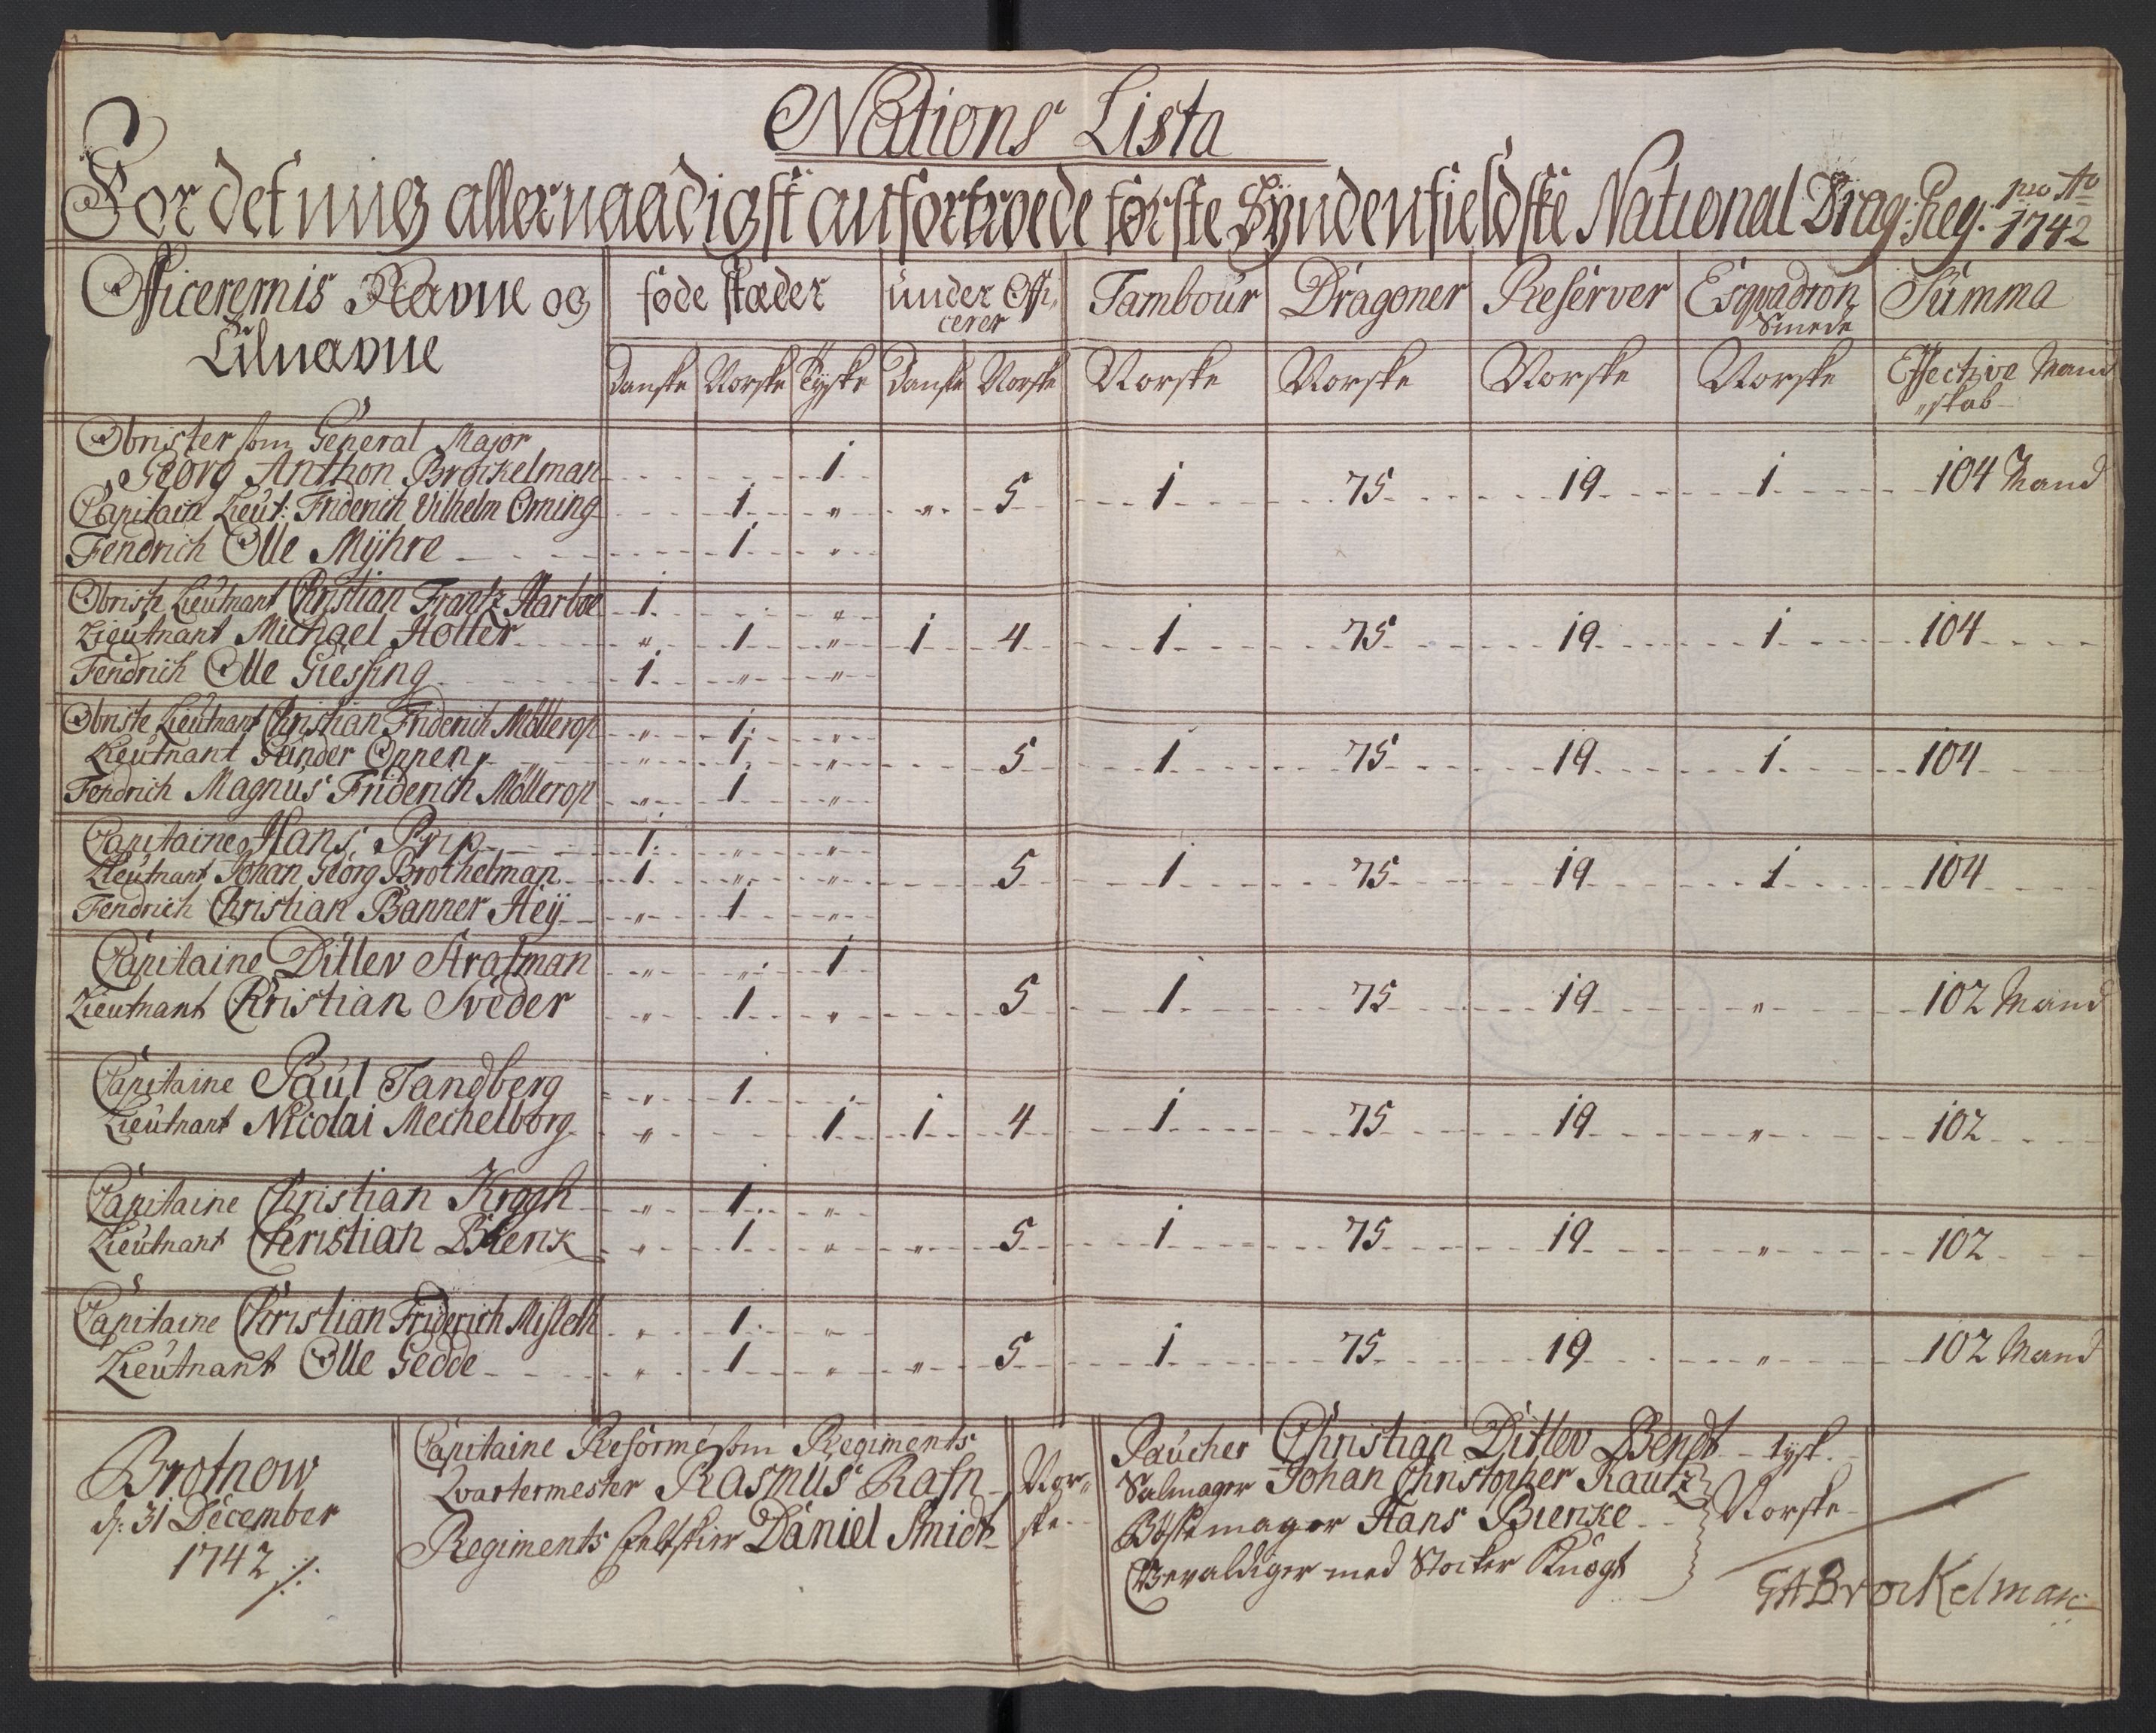 Nations Lista
For det mig allernaadigst anfortroede første Syndenfieldske National Drag: Reg: pro Ao 1742
Officerernis Navne og Tilnavne | føde stæder | under Officerer | Tambour | Dragoner | Reserver | Esqvadron Smede | Summa
Danske | Norske | Tyske | Danske | Norske | Norske | Norske | Norske | Norske | Effective Mand
"skab
Obrister som General Major
Georg Anthon Brockelman 1
5 1 75 19 1 104 Mand
Capitain Lieut: Friderich Vilhelm Orning 1 " "
Fendrich Olle Mÿhre 1 "
Obriste Lieutnant Christian Frantz Harboe 1 "
Lieutnant Michael Holter " 1 " 1 4 1 75 19 1 104
Fendrich Olle Giessing 1 " "
Obriste Lieutnant Christian Friderich Möllerop " 1 "
Lieutnant Gunder Oppen " 1 " 5 1 75 19 1 104
Fendrich Magnus Friderich Möllerop " 1 "
Capitaine Hans Prip 1 " "
Lieutnant Johan Georg Brothelman 1 " " 5 1 75 19 1 104
Fendrich Christian Banner Heÿ " 1 "
Capitaine Ditlev Stratman " " 1
Lieutnant Christian Sveder " 1 " 5 1 75 19 " 102 Mand
Capitaine Paul Tandberg " 1
Lieutnant Nicolai Mechelborg " 1 1 4 1 75 19 " 102
Capitaine Christian Krogh " 1 "
Lieutnant Christian Blenk " 1 " " 5 1 75 19 " 102
Capitaine Christian Friderich Misleth " 1 "
Lieutnant Olle Gedde " 1 " " 5 1 75 19 " 102 Mand
Brotnow
d: 31 December
1742
Capitaine Reformé som Regiments
Qvartermester Rasmus Rafn
Regiments Feltskier Daniel Smidt
Nor"
ske
Paucher Christian Ditlev Bendt tysk.
Salmager Johan Christopher Kautz
Bøssemager Hans Biencke
Gevaldiger med Stocker Knægt
Norske
GABrockelman